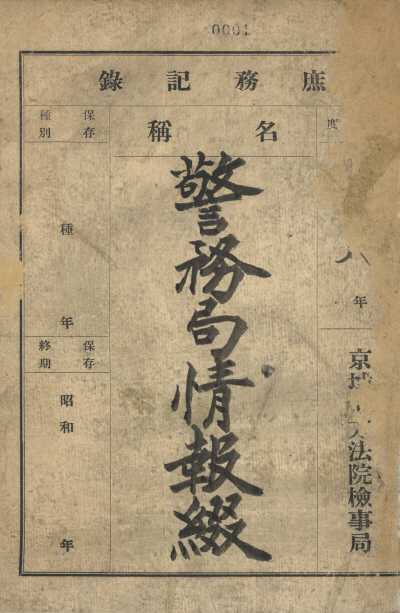 0001
庶務記錄
度
年
京 法院檢事局
名稱
警務局情報綴
保存種別
種
年
保存終期
昭和
年